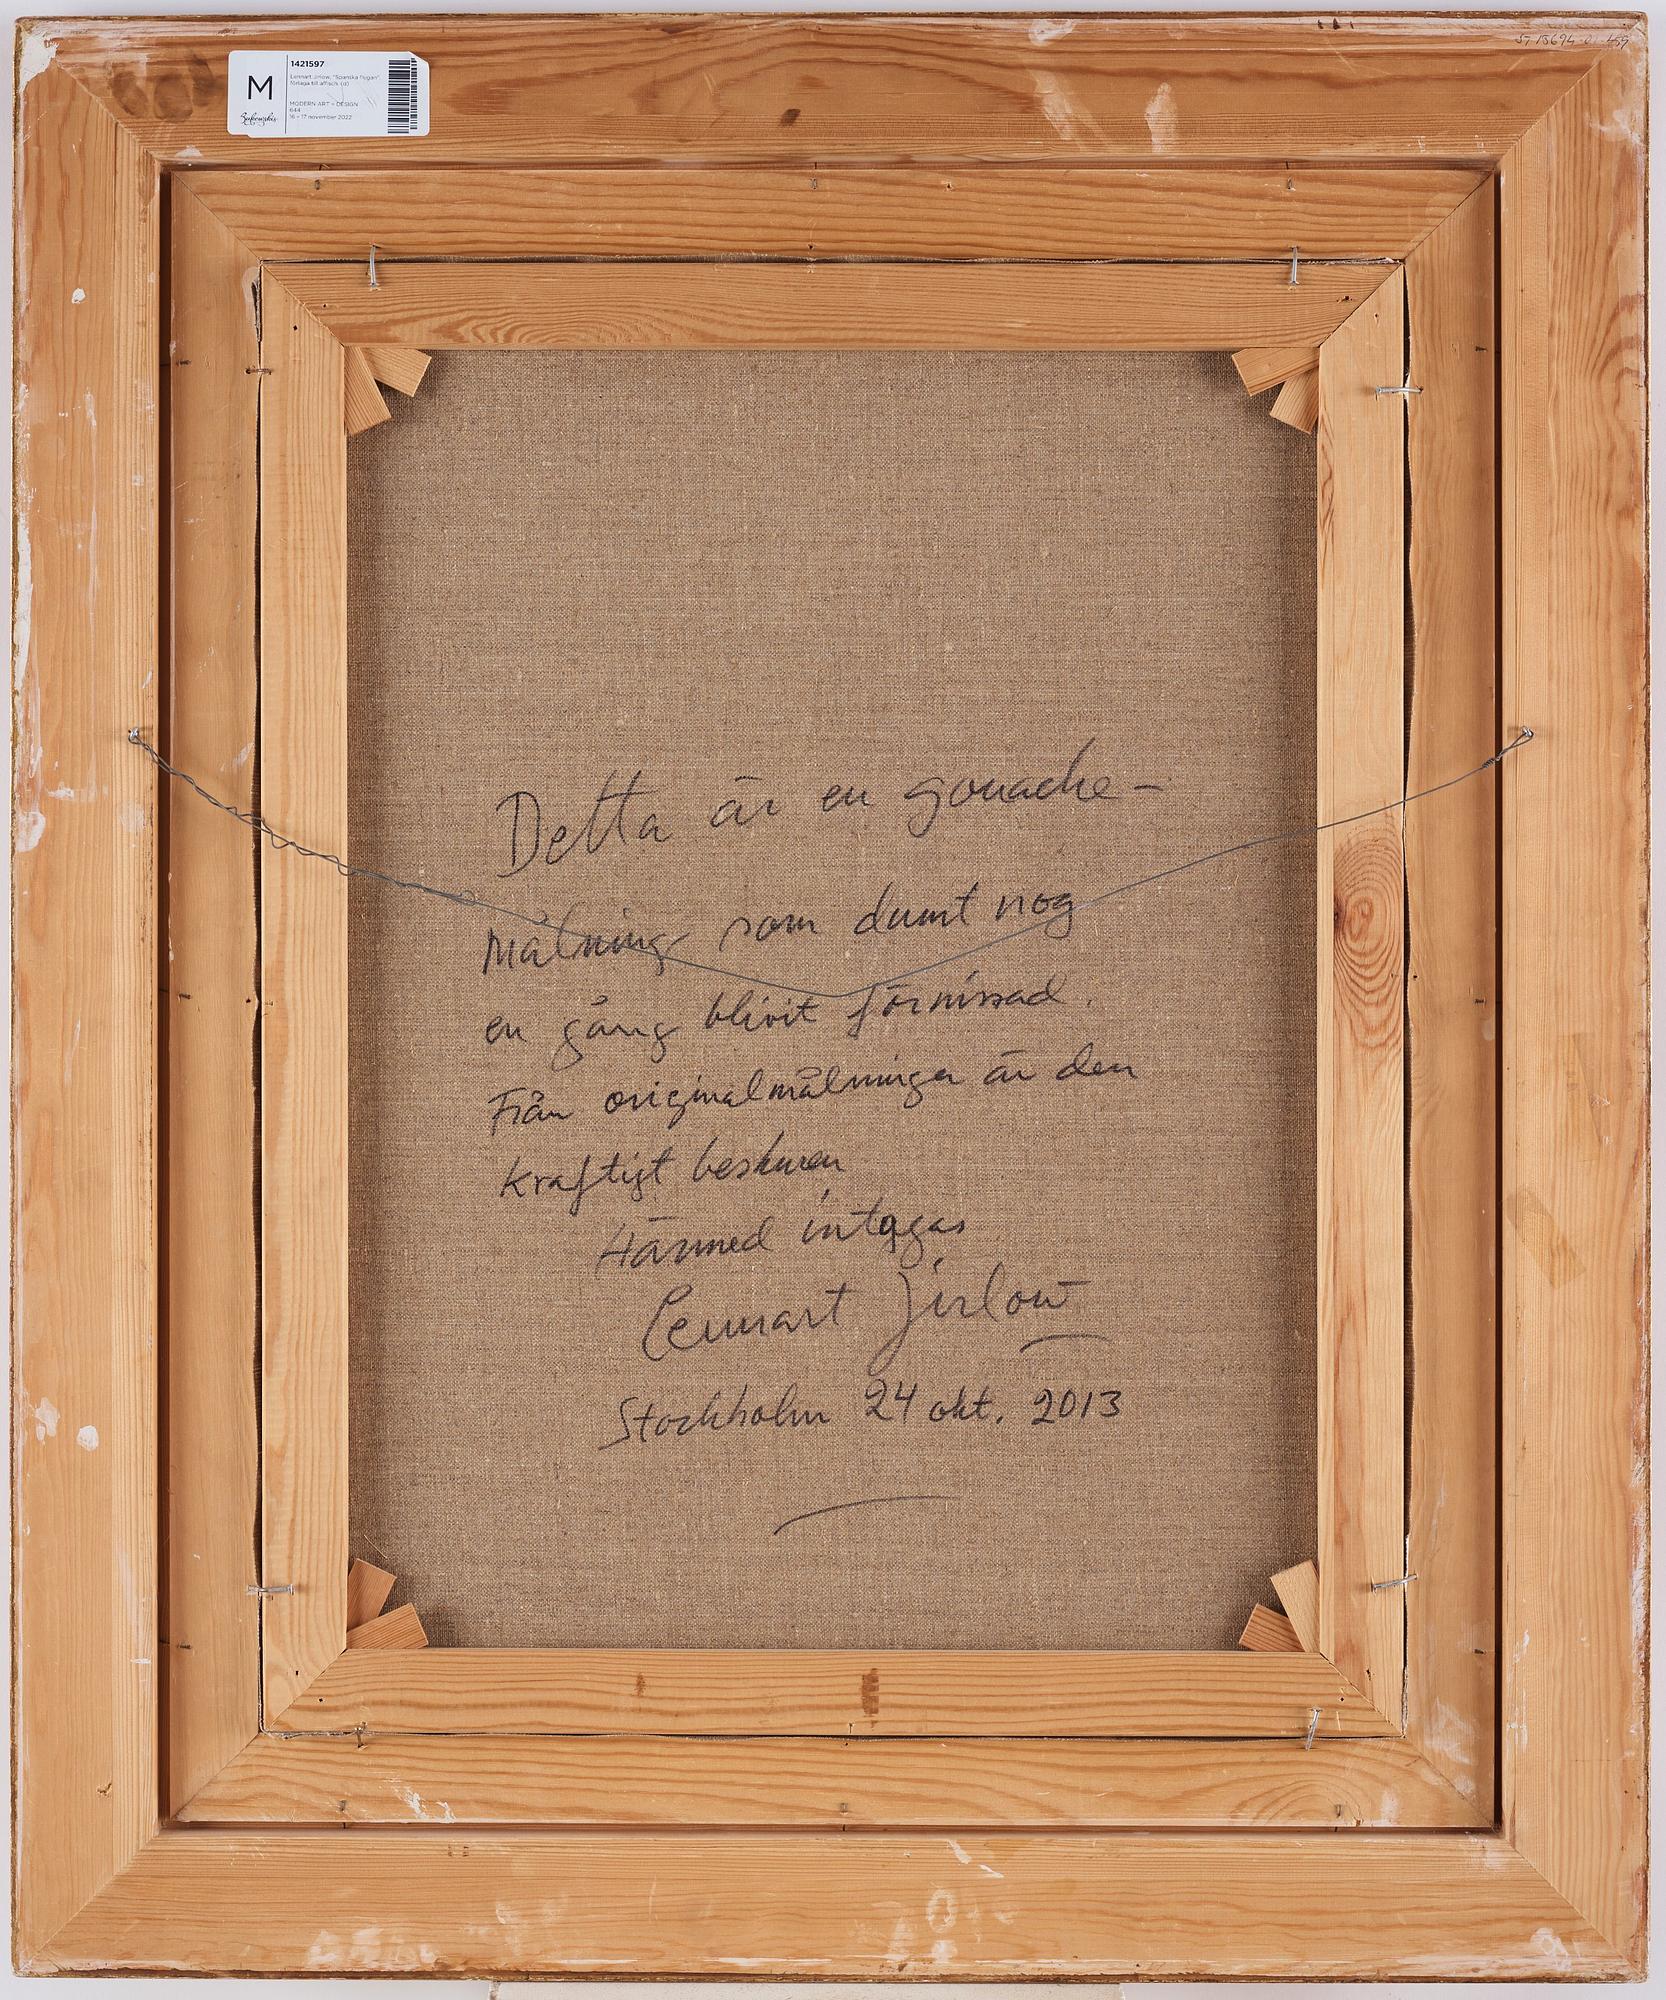 M
Bukowskis
1421597
Lennart Jirlow, "Spanska flugan",
förlaga till affisch. (d)
MODERN ART + DESIGN
644
16 – 17 november 2022
Detta är en gouache –
målning som dumt nog
en gång blivit förnissad.
Från originalmålningen är den
kraftigt beskuren
Härmed intygas
Lennart Jirlow
Stockholm 24 okt. 2013